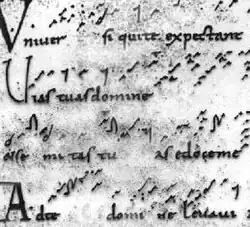 Vniver si qui te expectant
Vias tuas domine
mi tas tu as edoce me
Ad te domine levavi